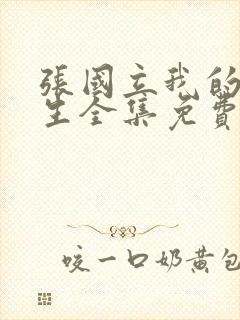 張國立我的
生全集免費
咬一口奶黄包